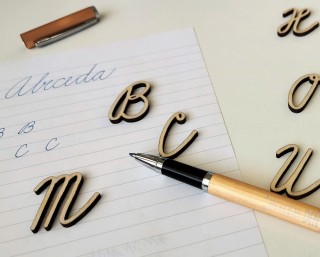 Abcceda
B B
C C
B
C
M
H
O
U